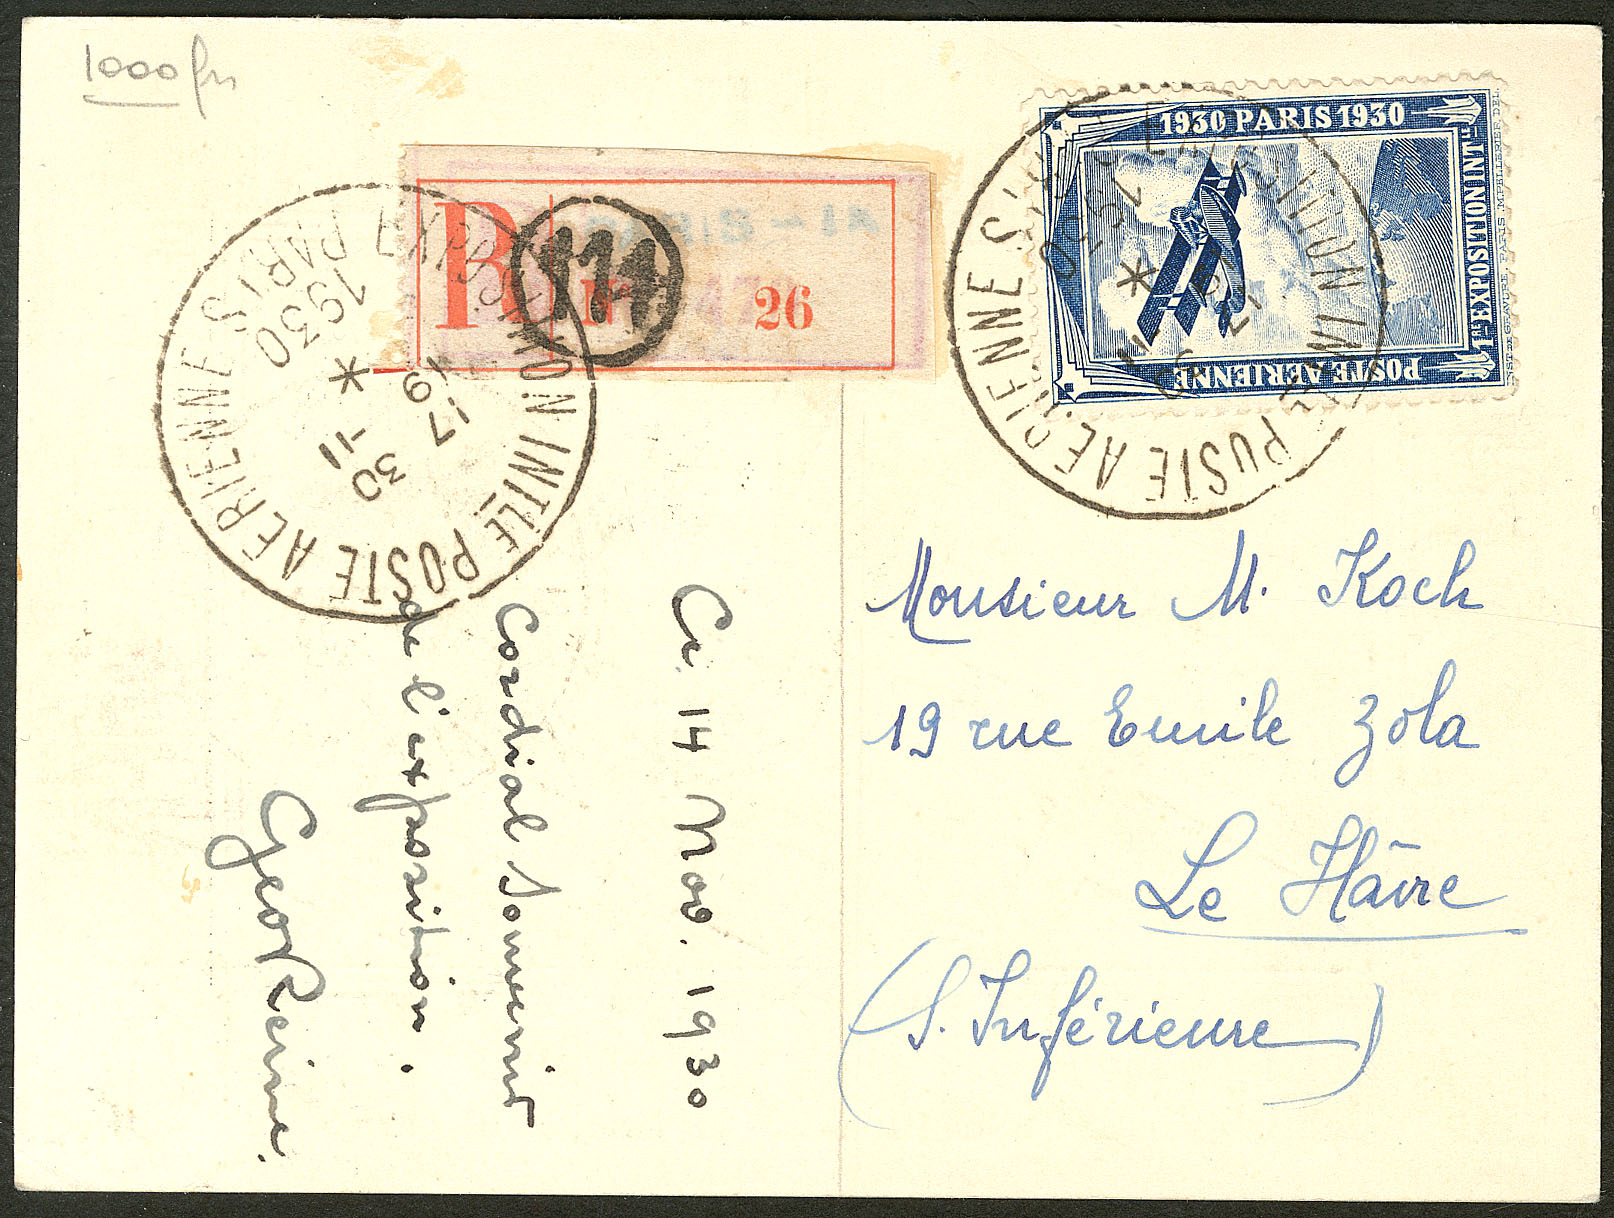 1000 frs
R
PARIS - 1A
N° 26
111
EXPOSITION INTLE POSTE AERIENNE
PARIS
1930
*
17
30 -11
1930 PARIS 1930
1RE EXPOSITION INTLE
POSTE AERIENNE
INST. DE GRAVURE, PARIS M. PELLETIER, DEL.
EXPOSITION INTLE POSTE AERIENNE
*
Ce 14 Nov. 1930
Cordial Souvenir
de l'exposition.
Geo Reine.
Monsieur M. Koch
19 rue Emile Zola
Le Hâvre
(S. Inférieure)